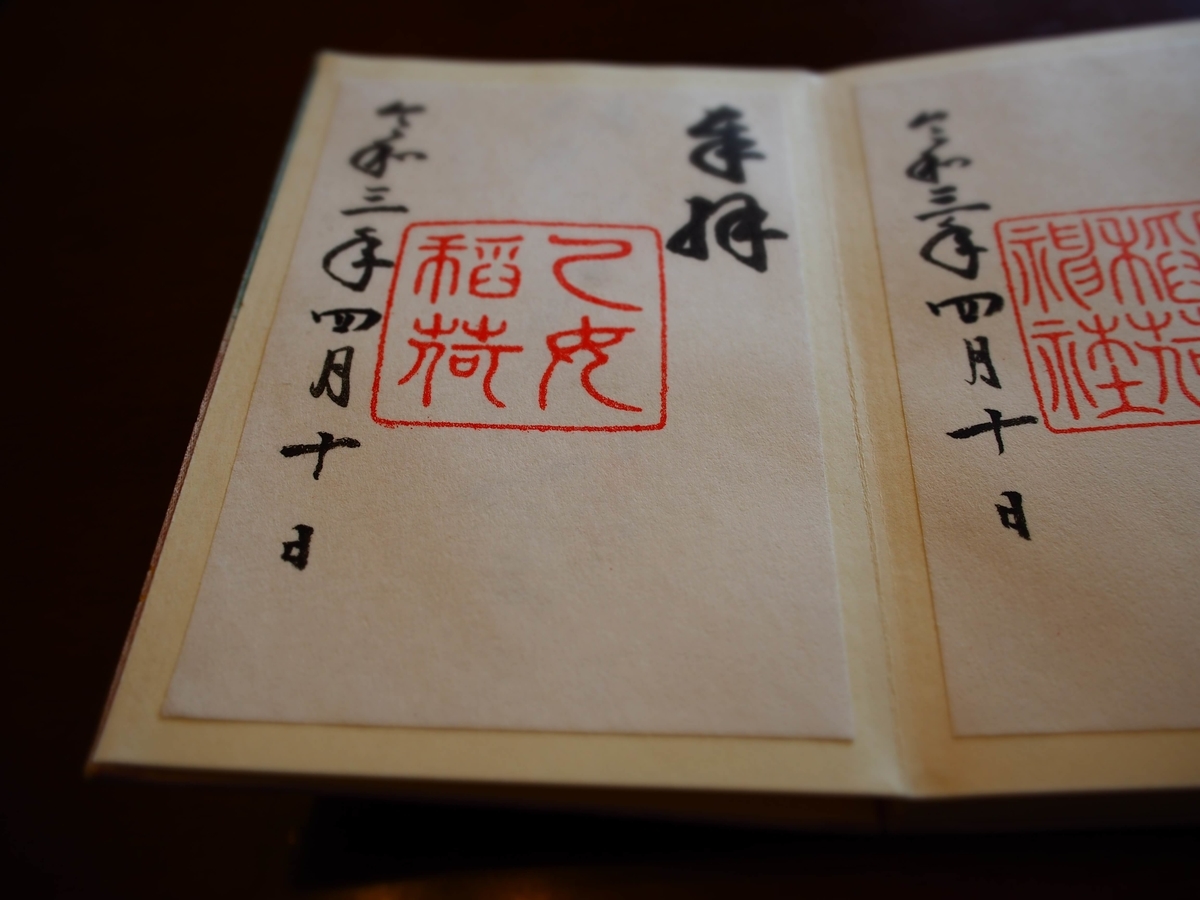 稲荷
神社
令和三年四月十日
奉拝
乙女
稲荷
令和三年四月十日